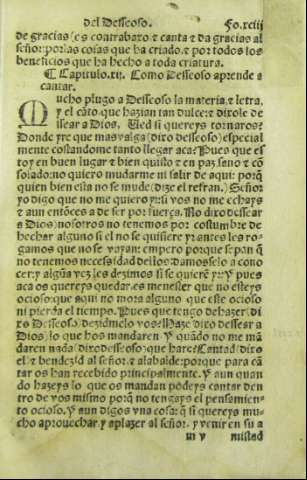 del Desseoso. Fo.xciij
de gracias (es contrabaxo ⁊ canta ⁊ da gracias al
señor: por las cosas que ha criado: ⁊ por todos los
beneficios que ha hecho a toda criatura.
¶ Capitulo.xij. Como Desseoso aprende a
cantar.
Mucho plugo a Desseoso la materia: ⁊ letra,
y el cãto que hazian tan dulce: ⁊ dixole de
ssear a Dios, Ued si quereys tornaros?
Donde yre que mas valga (dixo desseoso) especial
mente costandome tanto llegar aca? Pues que es
toy en buen lugar ⁊ bien quisto ⁊ en paz sano ⁊ cõ
solado: no quiero mudarme ni salir de aqui: porq̃
quien bien esta no se mude (dize el refran.) Señor
yo digo que no me quiero yr: si vos no me echays
⁊ aun entõces a de ser por fuerça. No dixo dessear
a Dios) nosotros no tenemos por costumbre de
hechar alguno si el no se quisiere yr antes les ro-
gamos que no se vayan: empero porque sepan q̃
no tenemos necessidad dellos: damosselo a cono
cer: y algũa vez les dezimos si se quierẽ yr: Y pues
aca os quereys quedar: es menester que no esteys
ocioso: que aqui no mora alguno que este ocioso
ni pierda el tiempo. Pues que tengo de hazer (di
xo Desseoso) dezidmelo vos? Haze (dixo dessear a
Dios) lo que hos mandaren. Y quãdo no me mã
daren nada (dixo desseoso) que hare? Cantad (dixo
el) ⁊ bendezid al señor ⁊ alabalde: porque para cã
tar os han recebido principalmente. Y aun quan
do hazeys lo que os mandan podeys cantar den
tro de vos mismo porq̃ no tengays el pensamien-
to ocioso. Y aun digos vna cosa: q̃ si quereys mu-
cho aprouechar y aplazer al señor, y venir en su a
mistad